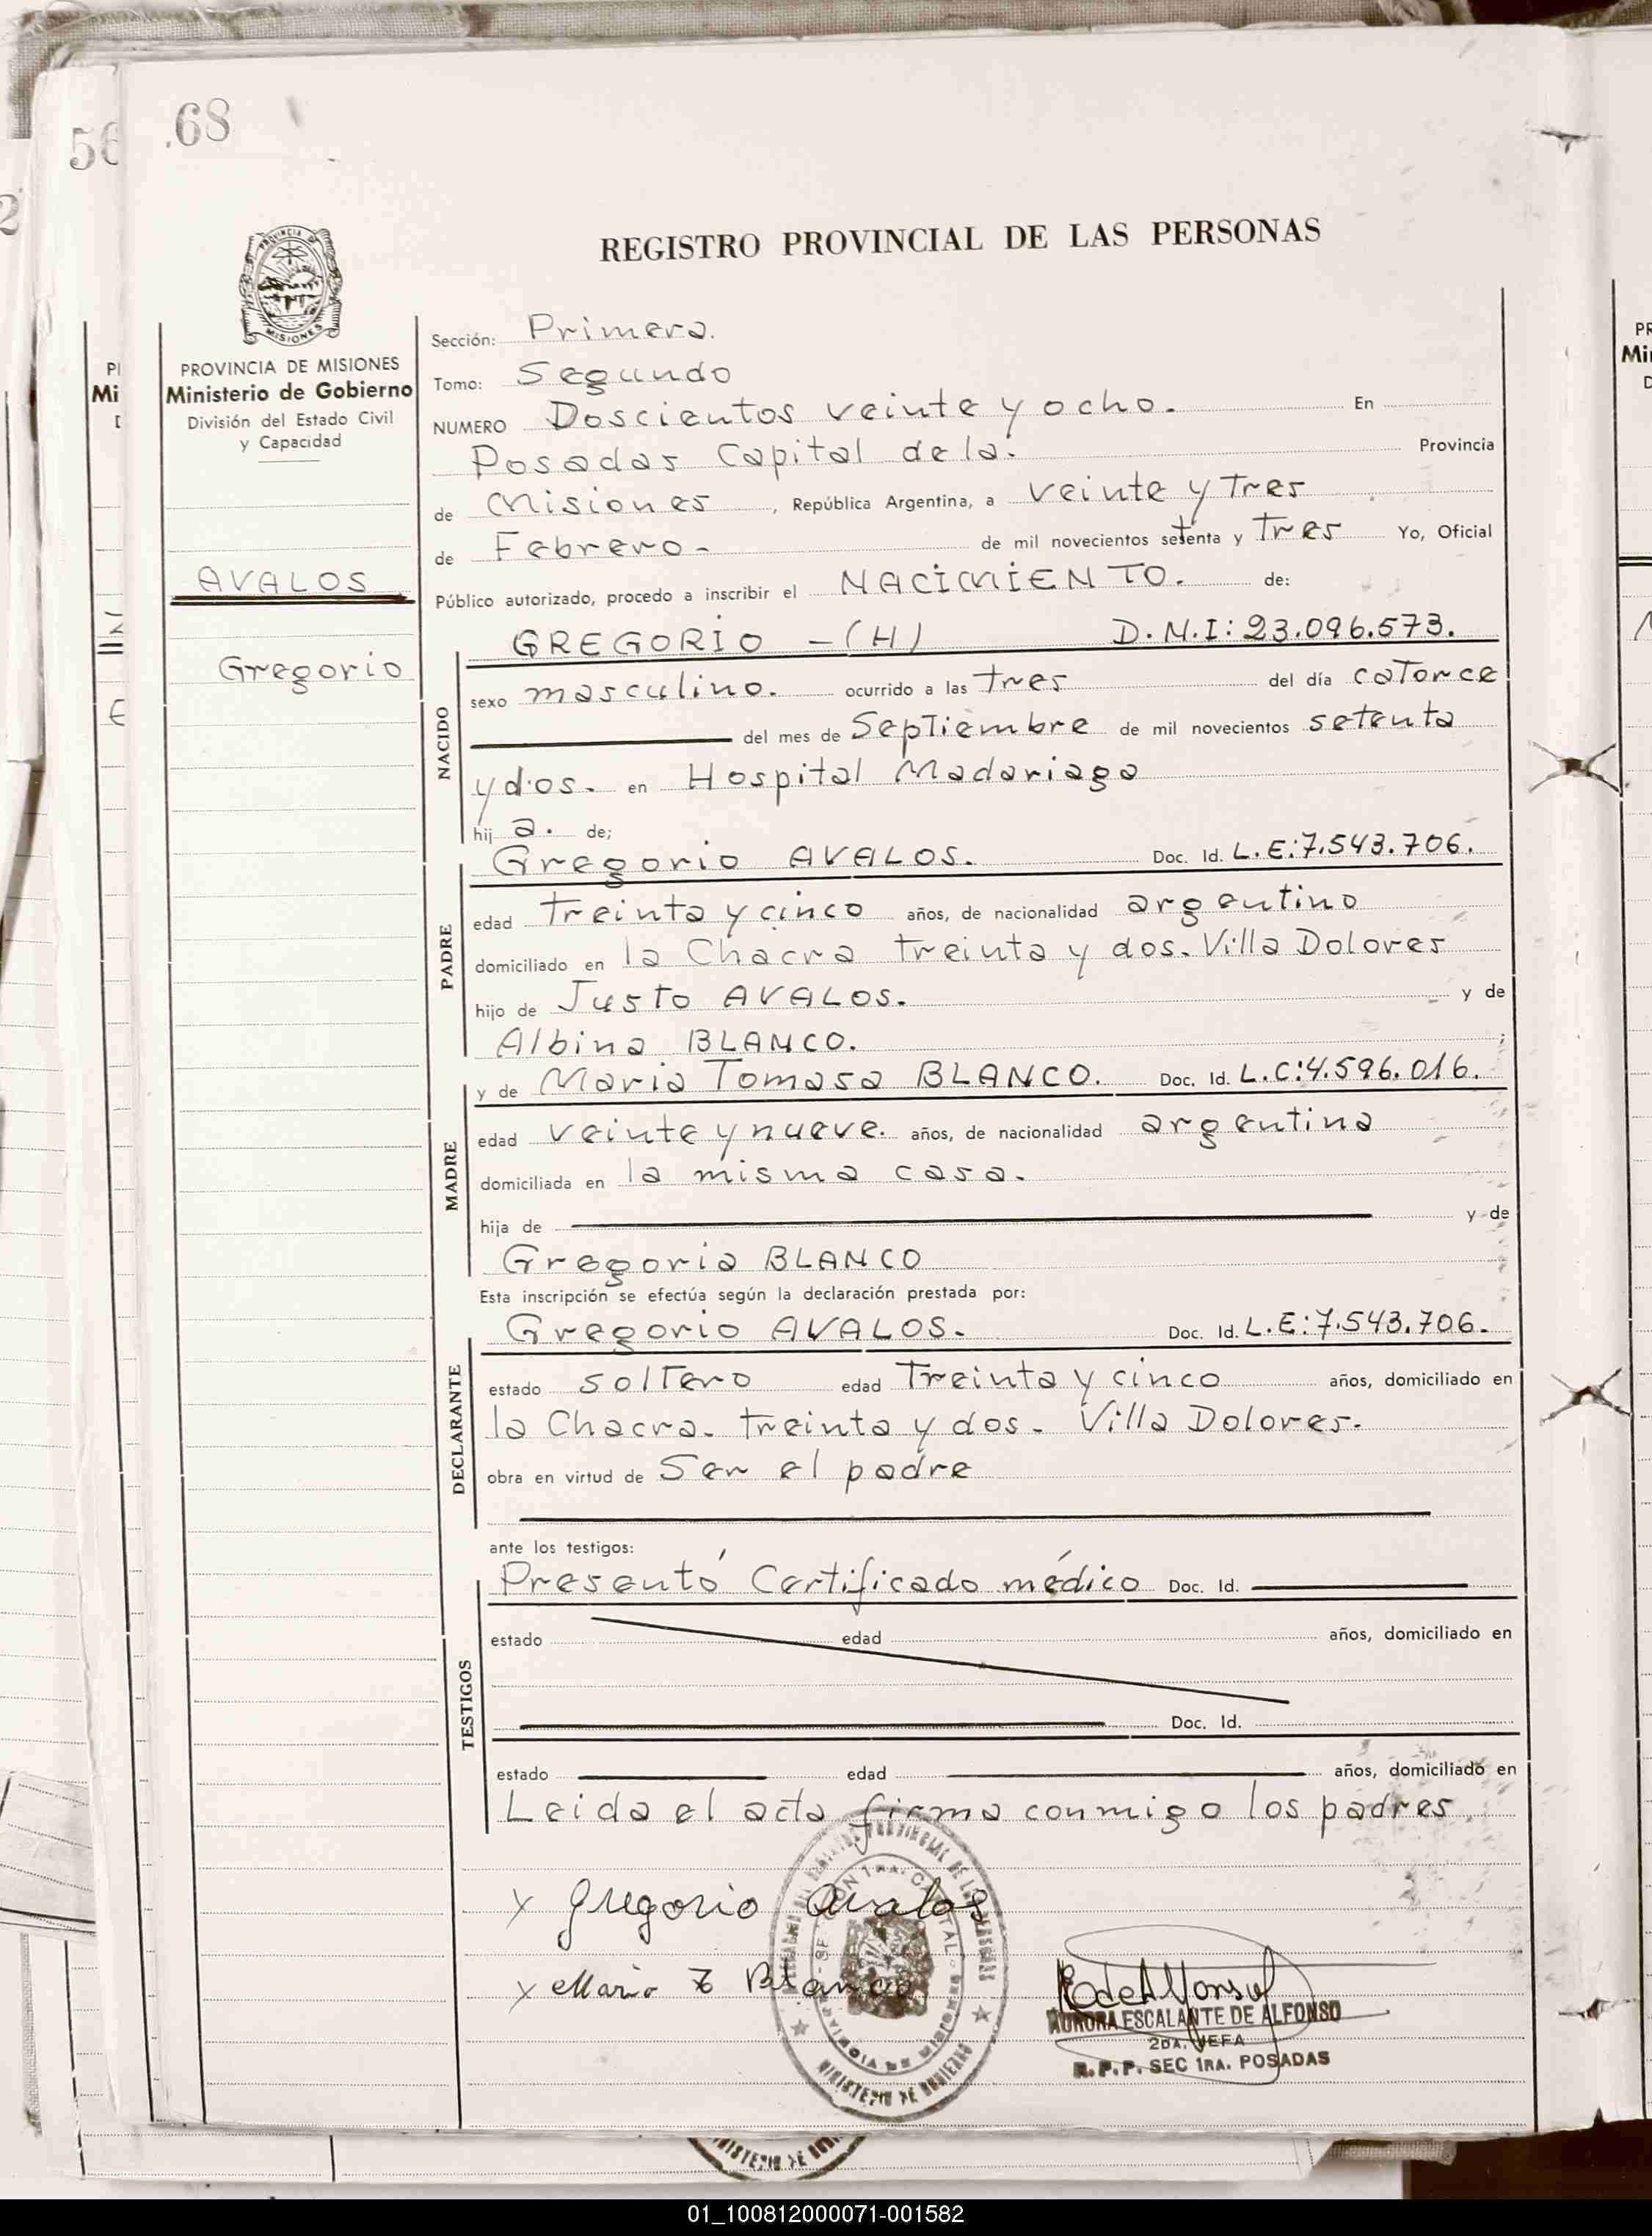 56
.68
REGISTRO PROVINCIAL DE LAS PERSONAS
PROVINCIA DE MISIONES
Ministerio de Gobierno
División del Estado Civil
y Capacidad
AVALOS
Gregorio
Sección: Primera.
Tomo: Segundo
NUMERO Doscientos veinte y ocho. En
Posadas Capital de la. Provincia
de Misiones, República Argentina, a veinte y Tres
de Febrero. de mil novecientos setenta y Tres Yo, Oficial
Público autorizado, procedo a inscribir el NACIMIENTO. de:
NACIDO
GREGORIO -(H) D.N.I: 23.096.573.
sexo masculino. ocurrido a las tres del día catorce
del mes de Septiembre de mil novecientos setenta
y dos. en Hospital Madariaga
hij a. de;
PADRE
Gregorio AVALOS. Doc. Id. L.E:7.543.706.
edad Treinta y cinco años, de nacionalidad argentino
domiciliado en la Chacra treinta y dos. Villa Dolores
hijo de Justo AVALOS. y de
Albina BLANCO. ;
MADRE
y de Maria Tomasa BLANCO. Doc. Id. L.C:4.596.016.
edad veinte y nueve. años, de nacionalidad argentina
domiciliada en la misma casa.
hija de y de
Gregoria BLANCO
Esta inscripción se efectúa según la declaración prestada por:
DECLARANTE
Gregorio AVALOS. Doc. Id. L.E:7.543.706.
estado solTero edad Treinta y cinco años, domiciliado en
la Chacra. treinta y dos. Villa Dolores.
obra en virtud de Ser el padre
ante los testigos:
TESTIGOS
Presentó Certificado médico Doc. Id.
estado edad años, domiciliado en
Doc. Id.
estado edad años, domiciliado en
Leida el acta firma conmigo los padres.
x Gregorio Avalos
x Maria T Blanco
AURORA ESCALANTE DE ALFONSO
2DA. JEFA
R.P.P. SEC 1RA. POSADAS
MINISTERIO DE GOBIERNO
01_100812000071-001582